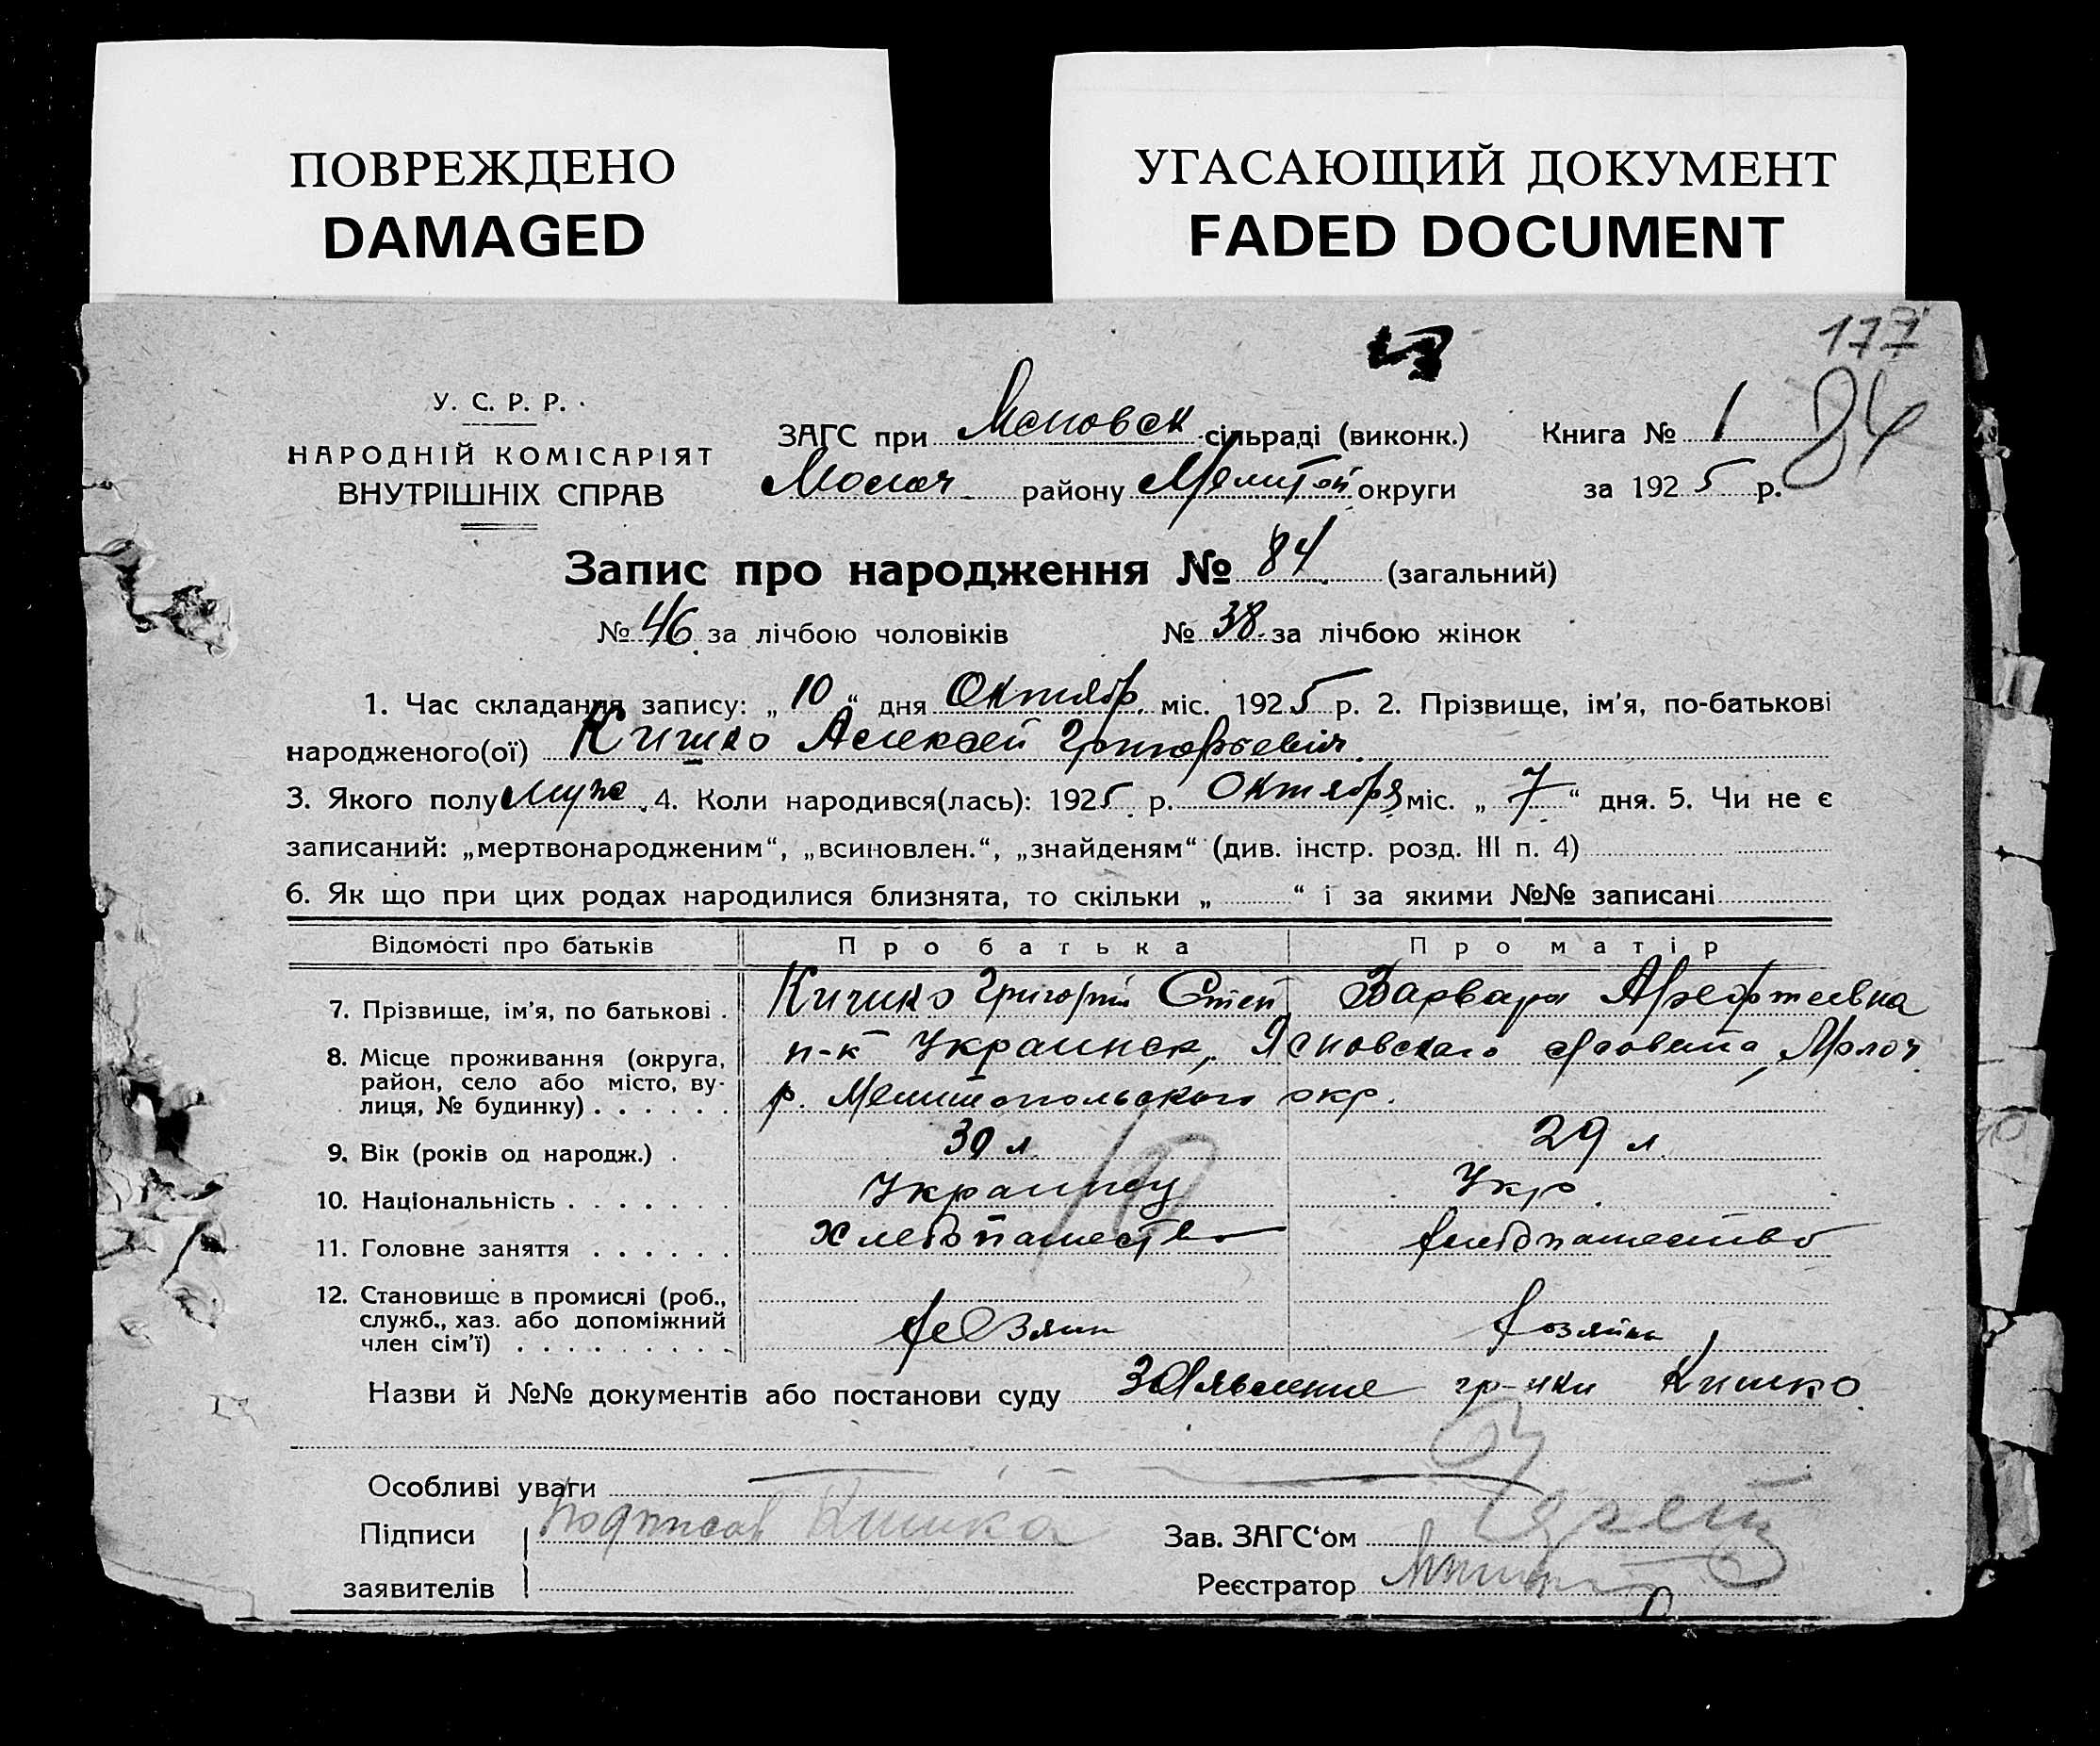 ПОВРЕЖДЕНО
DAMAGED
УГАСАЮЩИЙ ДОКУМЕНТ
FADED DOCUMENT
177
84
У. С. Р. Р.
НАРОДНІЙ КОМІСАРІЯТ
ВНУТРІШНІХ СПРАВ
ЗАГС при Ясновск сільраді (виконк.)
Молоч. району Мелитоп округи
Книга № 1
за 1925 р.
Запис про народження № 84 (загальний)
№ 46 за лічбою чоловіків № 38 за лічбою жінок
1. Час складання запису: „10“ дня Октябр. міс. 1925 р. 2. Прізвище, ім'я, по-батькові
народженого(ої) Кишко Алексей Григорьевич
3. Якого полу муж. 4. Коли народився(лась): 1925 р. Октября міс. „7“ дня. 5. Чи не є
записаний: „мертвонародженим“, „всиновлен.“, „знайденям“ (див. інстр. розд. III п. 4)
6. Як що при цих родах народилися близнята, то скільки „ “ і за якими №№ записані
Відомості про батьків Про батька Про матір
7. Прізвище, ім'я, по батькові . Кишко Григорий Степ Варвара
8. Місце проживання (округа, район, село або місто, вулиця, № будинку) . . . . . .
п-к Украинск, Ясновского Молоч.
р. Мелитопольского окр.
9. Вік (років од народж.) . 30 л. 29 л.
10. Національність . . . . . . . Украинец Укр.
11. Головне заняття . . . . . . Хлебопашество хлебопашество
12. Становище в промислі (роб., служб., хаз. або допоміжний член сім'ї) . . . . . . . . . хозяин хозяйка
Назви й №№ документів або постанови суду Заявление гр-нки Кишко
Особливі уваги
Підписи Подписал Кишко
заявителів
Зав. ЗАГС‘ом
Реєстратор